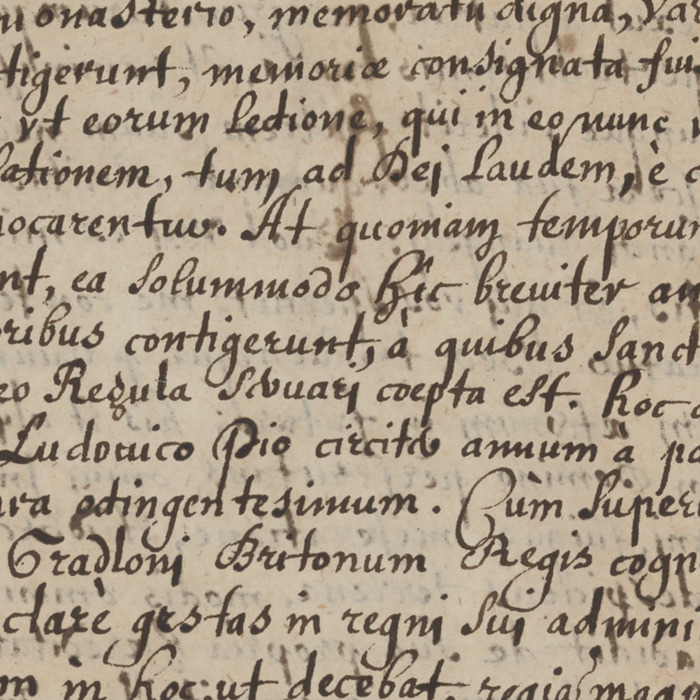 monasterio, memoratu digna, va
tigerunt, memoriæ consignata fui
vt eorum lectione, qui in eo nunc
lationem, tum ad Dei laudem, è c
uocarentur. At quoniam temporu
nt, ea solummodo hîc breuiter an
oribus contigerunt, à quibus sanct
ro Regula seruari coepta est. hoc
Ludouico Pio circiter annum à pa
ara octingentesimum. Cùm super
Gradloni Britonum Regis cogn
clarè gestas in regni sui admini
in hoc, ut decebat, regia mag